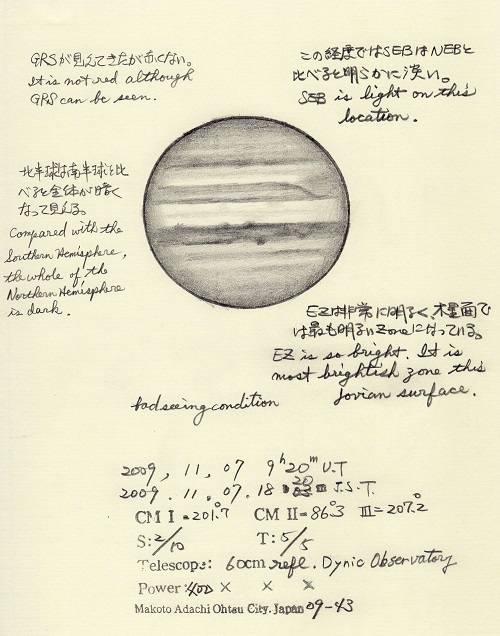 GRSが見えてきたが赤くない。
It is not red although
GRS can be seen.
この経度ではSEBはNEBと
比べると明らかに淡い。
SEB is light on this
location.
北半球は南半球と比
べると全体が暗く
なって見える。
Compared with the
Southern Hemisphere,
the whole of the
Northern Hemisphere
is dark.
EZは非常に明るく、木星面で
は最も明るいZoneになっている。
EZ is so bright. It is
most brightish zone this
Jovian surface.
bad seeing condition
2009, 11, 07 9h 20m U.T
2009. 11. 07. 18 20 J.S.T.
CM I = 201.°7 CM II = 86.°3 III = 207.°2
S: 2/10 T: 5/5
Telescope: 60cm refl. Dynic Observatory
Power: 400 × × ×
Makoto Adachi Ohtsu City. Japan 09-43